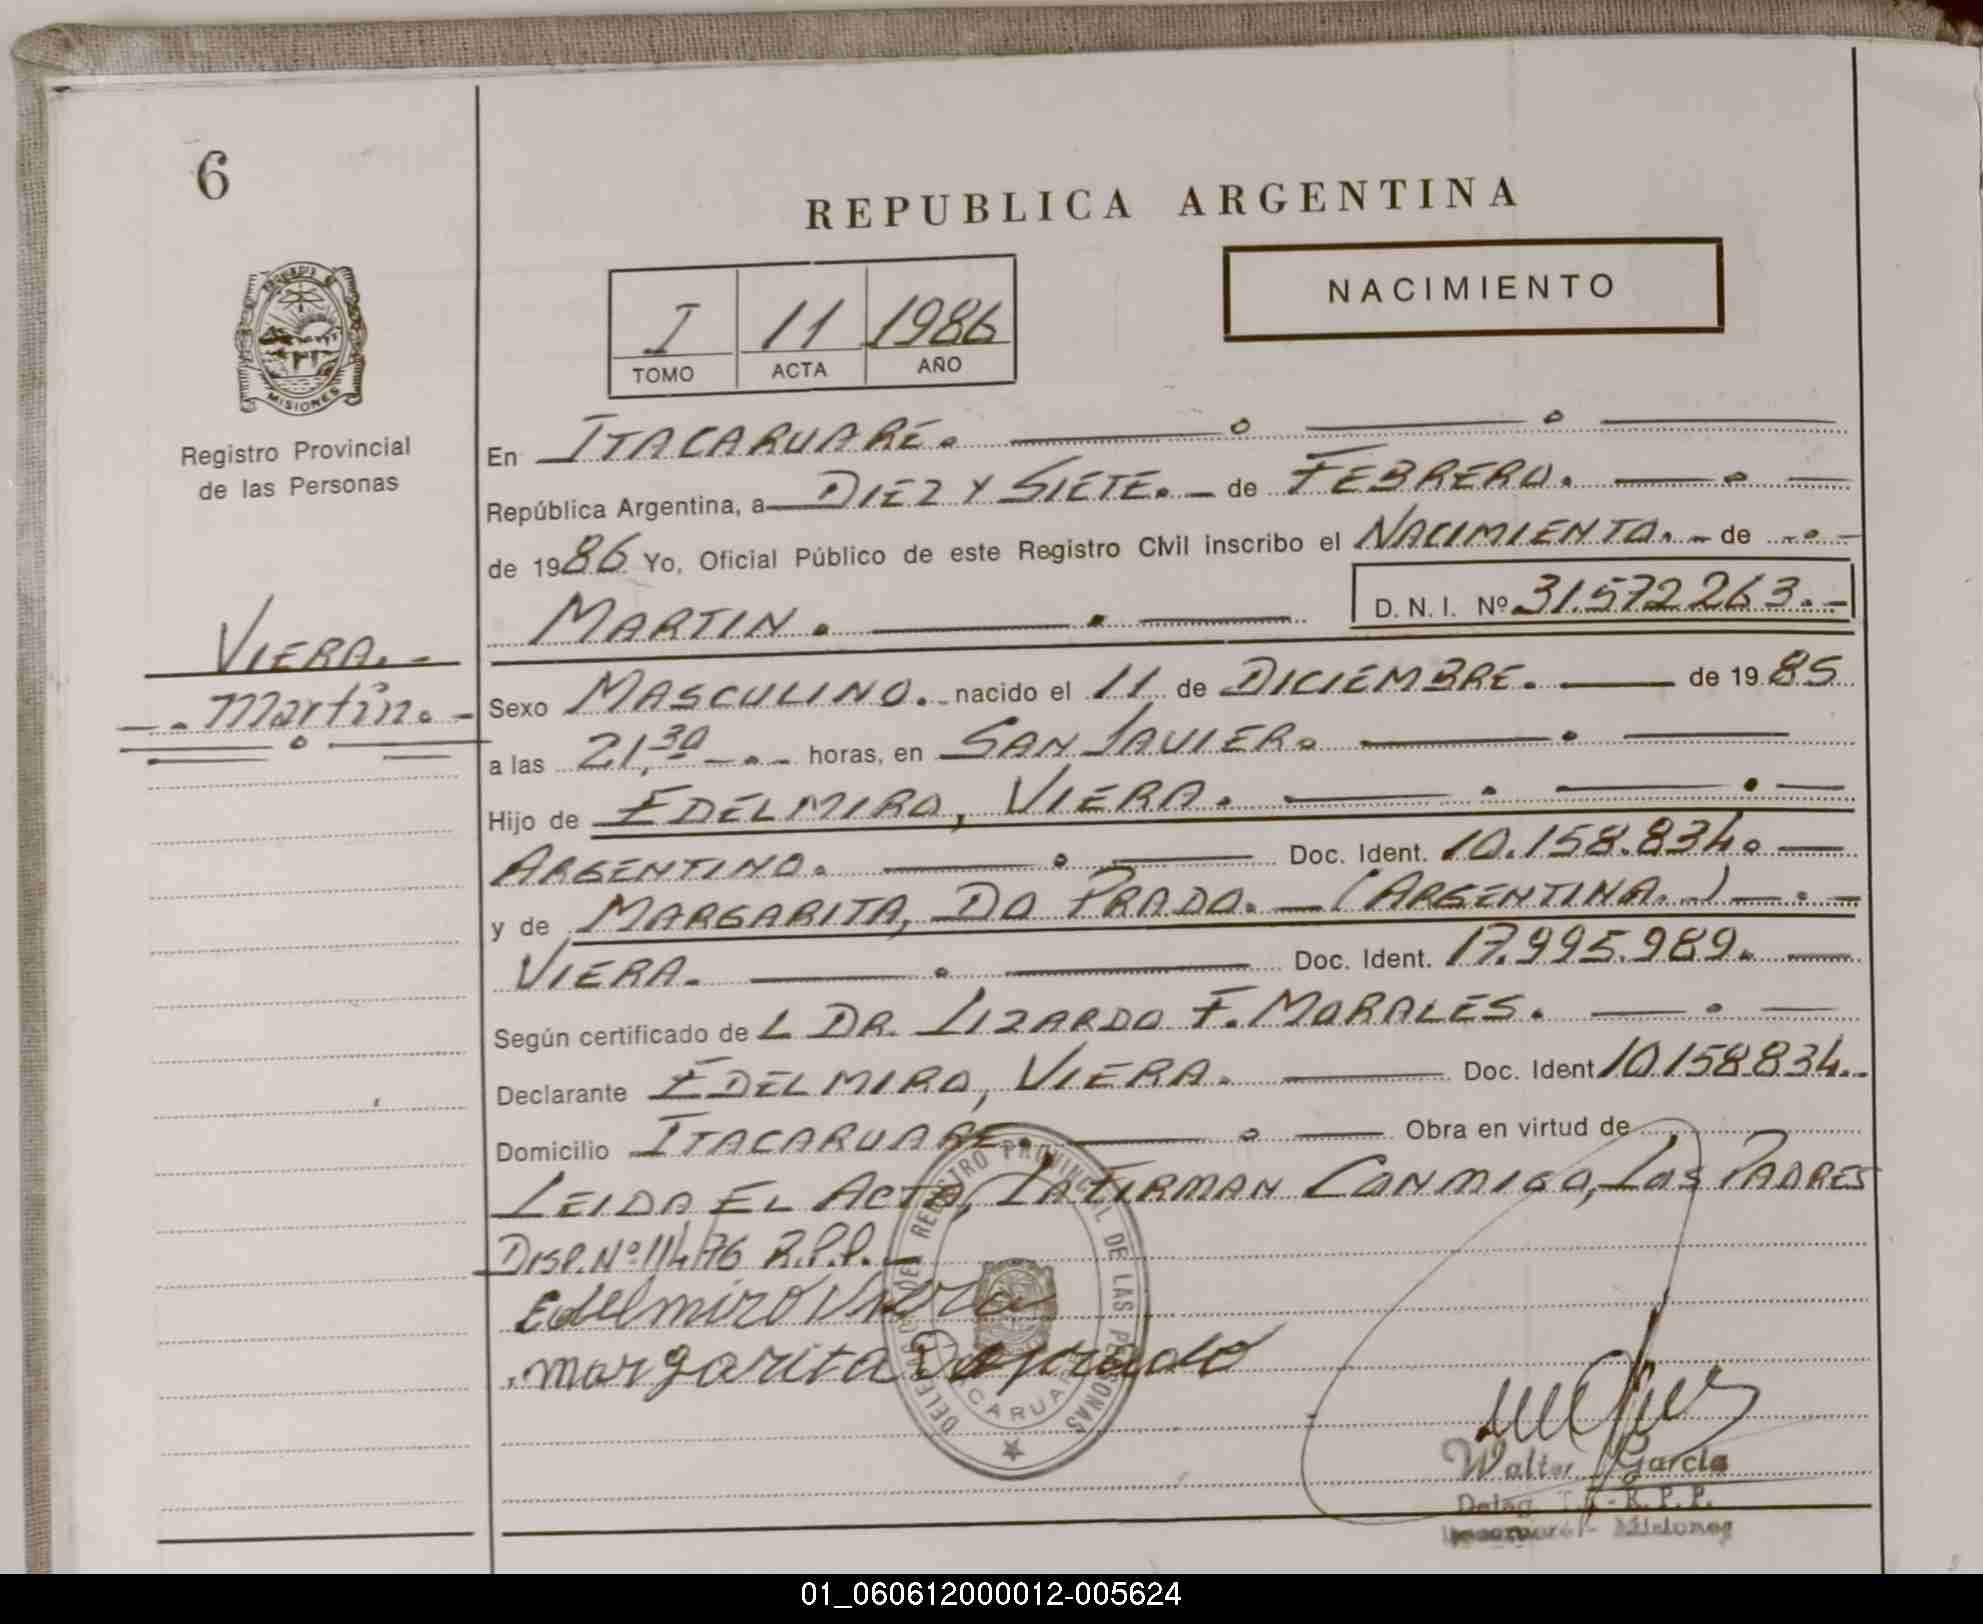 6
REPUBLICA ARGENTINA
NACIMIENTO
I 11 1986
TOMO ACTA AÑO
MISIONES
Registro Provincial
de las Personas
VIERA.-
-.Martin.-
En ITACARUARÉ.
República Argentina, a DIEZ Y SIETE.- de FEBRERO.
de 1986 Yo, Oficial Público de este Registro Civil inscribo el NACIMIENTO.- de
MARTIN. D. N. I. Nº 31.572263.-
Sexo MASCULINO.- nacido el 11 de DICIEMBRE. de 1985
a las 21,30 horas, en SAN JAVIER.
Hijo de EDELMIRO, VIERA.
ARGENTINO. Doc. Ident. 10.158.834.
y de MARGARITA, DO PRADO.-(ARGENTINA.)
VIERA. Doc. Ident. 17.995.989.
Según certificado de L DR. LIZARDO F. MORALES.
Declarante EDELMIRO, VIERA. Doc. Ident 10.158834.-
Domicilio ITACARUARE. Obra en virtud de
LEIDA EL ACTA, LA FIRMAN CONMIGO, LOS PADRES
DISP. Nº 114/76 R.P.P.-
Edelmiro Viera
margarita Doprado
DELEG. DE REGISTRO PROVINCIAL DE LAS PERSONAS
Walter García
Deleg. - R. P. P.
Misiones
01_060612000012-005624